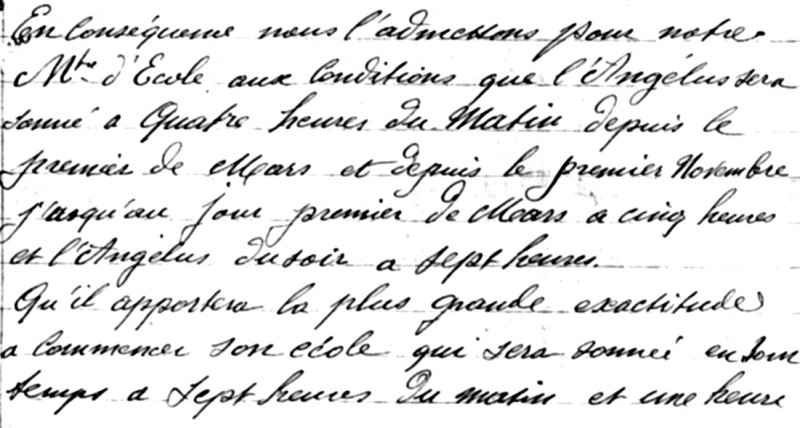 En conséquence nous l'admettons pour notre
Mtre d'Ecole aux Conditions que l'Angélus sera
sonné a Quatre heures du Matin depuis le
premier de Mars et depuis le premier Novembre
j'usqu'au jour premier de Mars a cinq heures
et l'Angélus du soir a sept heures.
Qu'il apportera la plus grande exactitude
a Commencer son école qui sera sonnée en son
temps a sept heures du matin et une heure